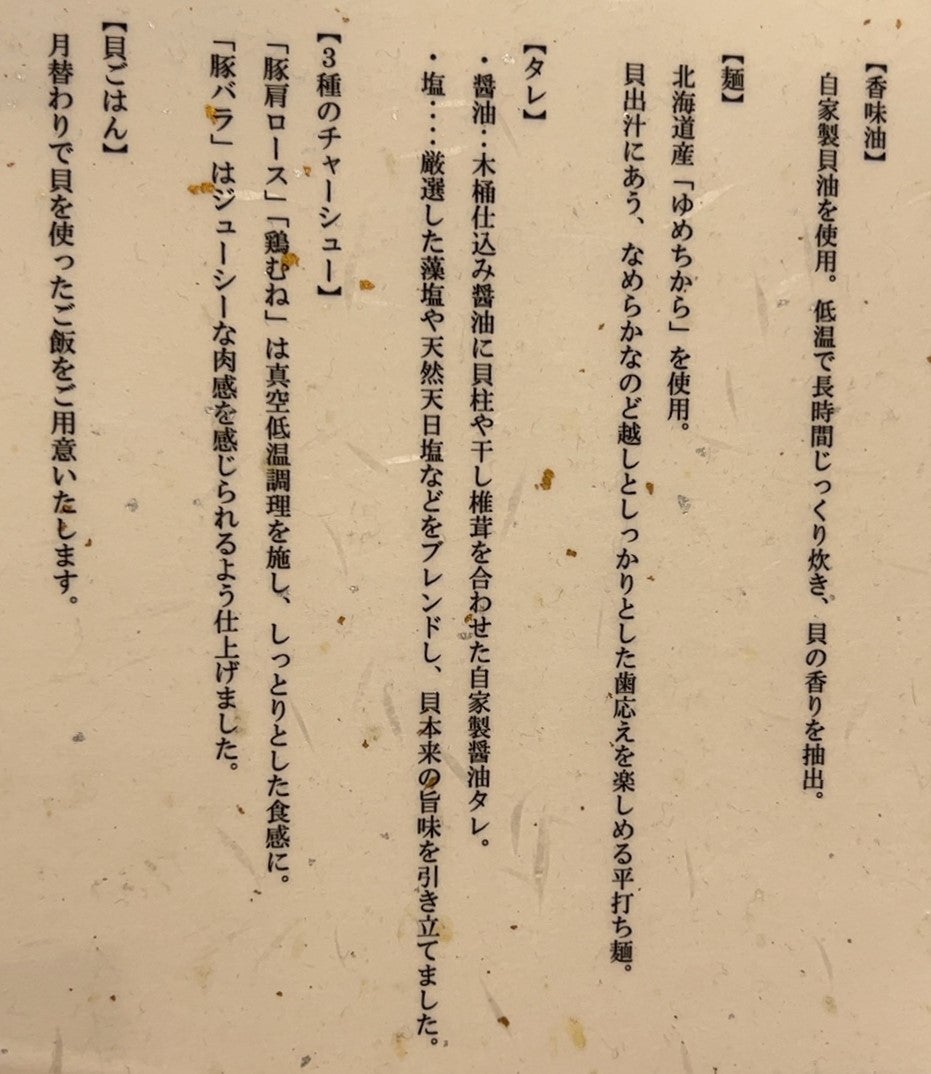 【香味油】
自家製貝油を使用。低温で長時間じっくり炊き、貝の香りを抽出。
【麺】
北海道産「ゆめちから」を使用。
貝出汁にあう、なめらかなのど越しとしっかりとした歯応えを楽しめる平打ち麺。
【タレ】
・醤油‥木桶仕込み醤油に貝柱や干し椎茸を合わせた自家製醤油タレ。
・塩‥‥厳選した藻塩や天然天日塩などをブレンドし、貝本来の旨味を引き立てました。
【3種のチャーシュー】
「豚肩ロース」「鶏むね」は真空低温調理を施し、しっとりとした食感に。
「豚バラ」はジューシーな肉感を感じられるよう仕上げました。
【貝ごはん】
月替わりで貝を使ったご飯をご用意いたします。